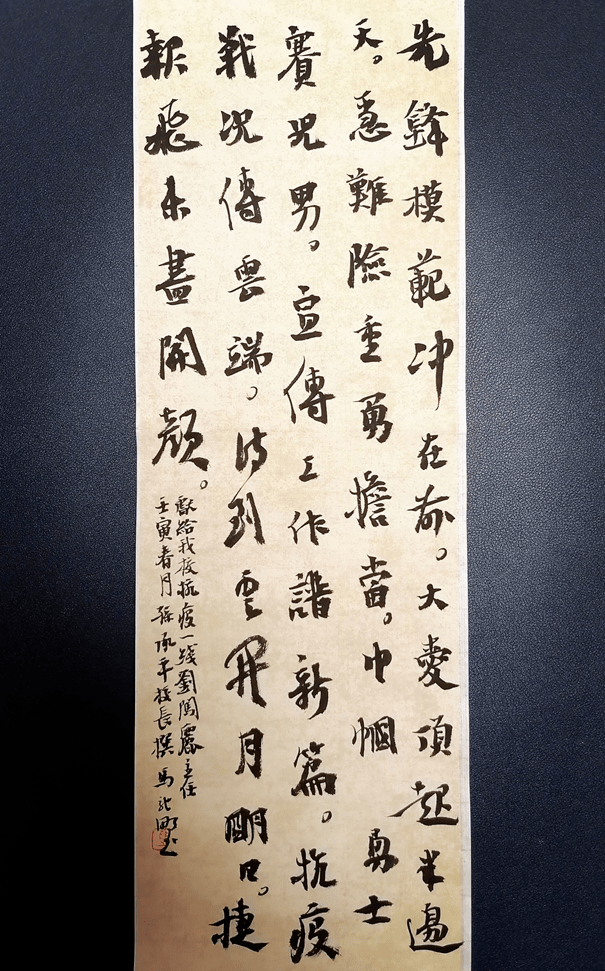 先鋒模範冲在前。大愛頂起半邊
天。急難險重勇擔當。巾幗勇士
賽児男。宣傳工作譜新篇。抗疫
戰况傳雲端。待到雲開月明日。捷
報飛來盡開顔。
獻給我校抗疫一綫劉麗主任
壬寅春月孫承平校長撰馬